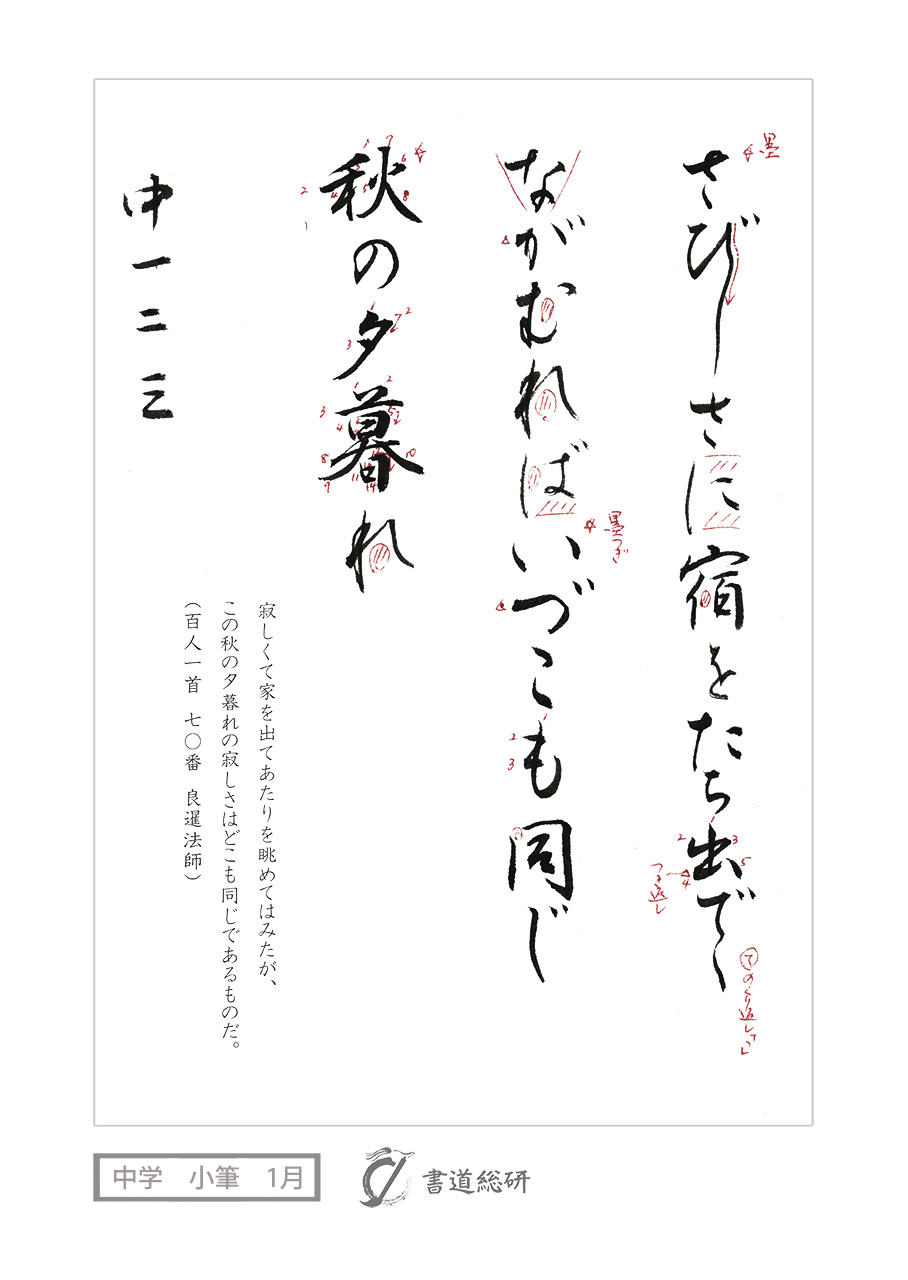 墨
さびしさに宿をたち出でゝ
つき返し
てのくり返し「ゝ」
ながむればいづこも同じ
墨つぎ
秋の夕暮れ
中一二三
寂しくて家を出てあたりを眺めてはみたが、
この秋の夕暮れの寂しさはどこも同じであるものだ。
(百人一首 七〇番 良暹法師)
中学 小筆 1月
書道総研